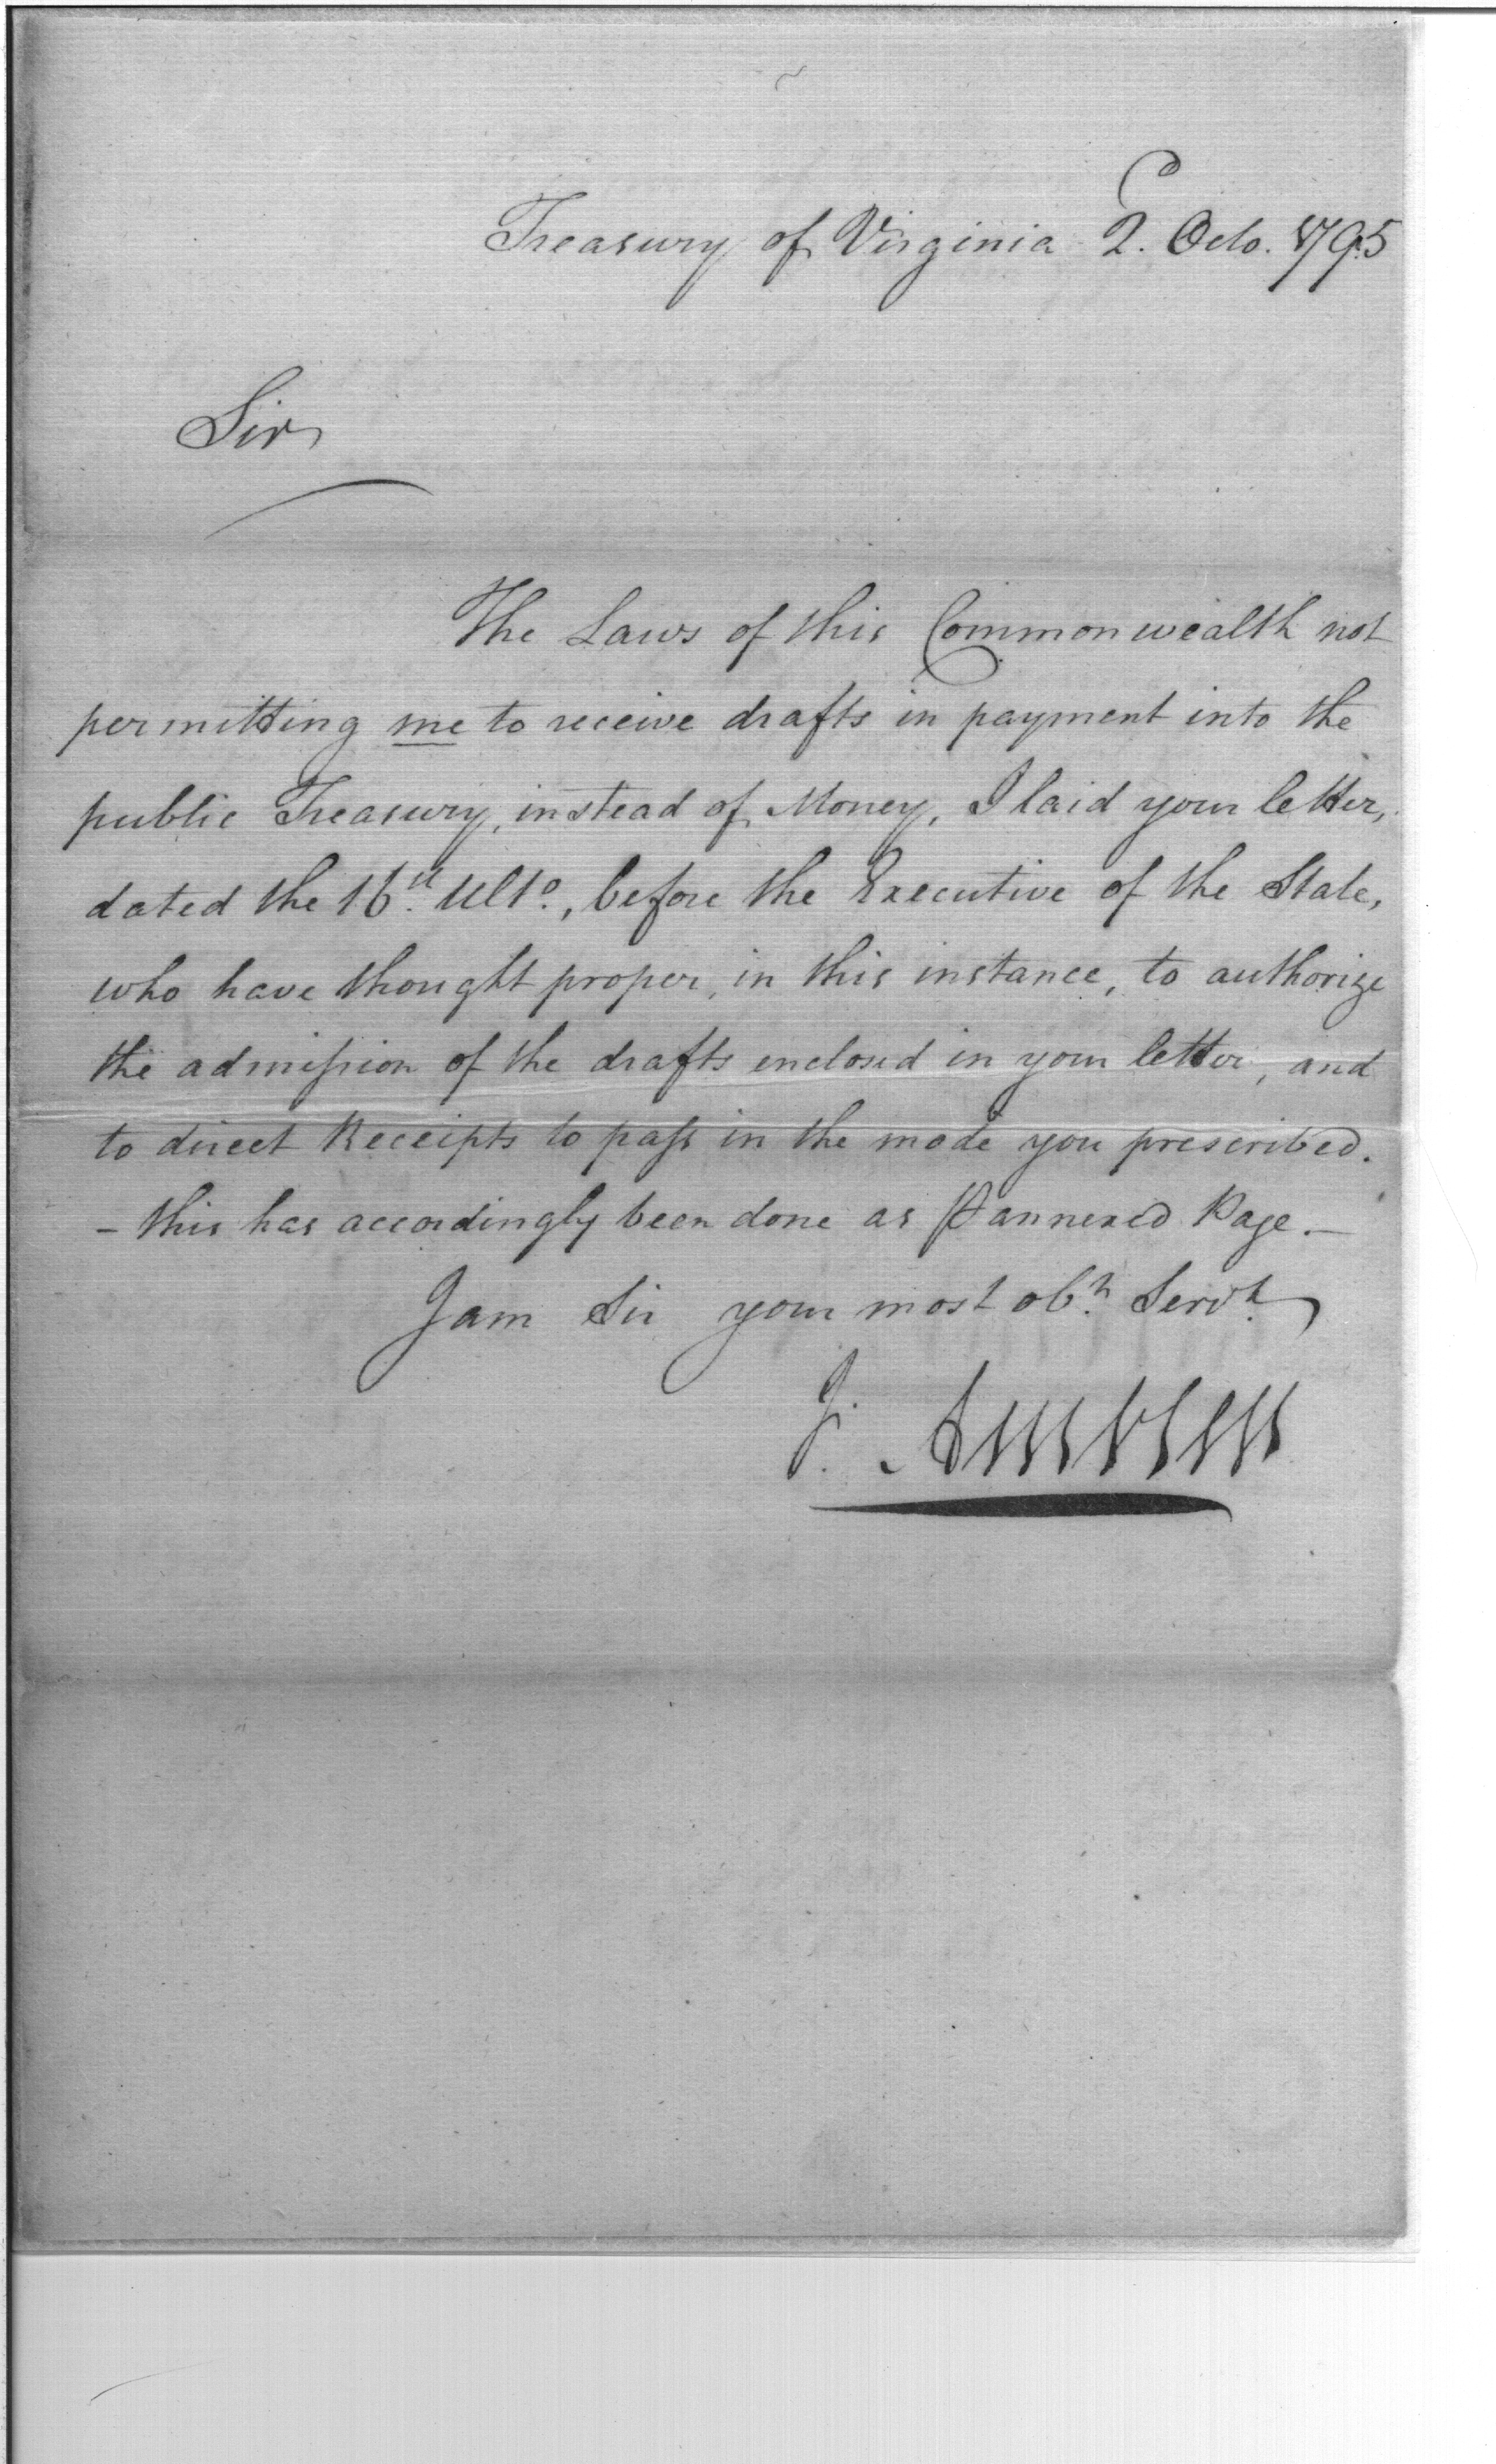 Treasury of Virginia 2. Octo. 1795
Sir
The Laws of this Commonwealth not
permitting me to receive drafts in payment into the
public Treasury, instead of Money, I laid your letter,
dated the 16th. Ulto., before the Executive of the State,
who have thought proper, in this instance, to authorize
the admission of the drafts enclosed in your letter, and
to direct Receipts to pass in the mode you prescribed.
- this has accordingly been done as ⅌ annexed Page. —
I am Sir your most obt. Servt.
J. Ambler